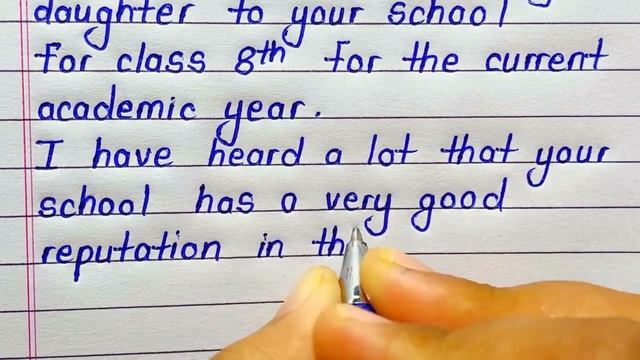 daughter to your school
for class 8th for the current
academic year.
I have heard a lot that your
school has a very good
reputation in th